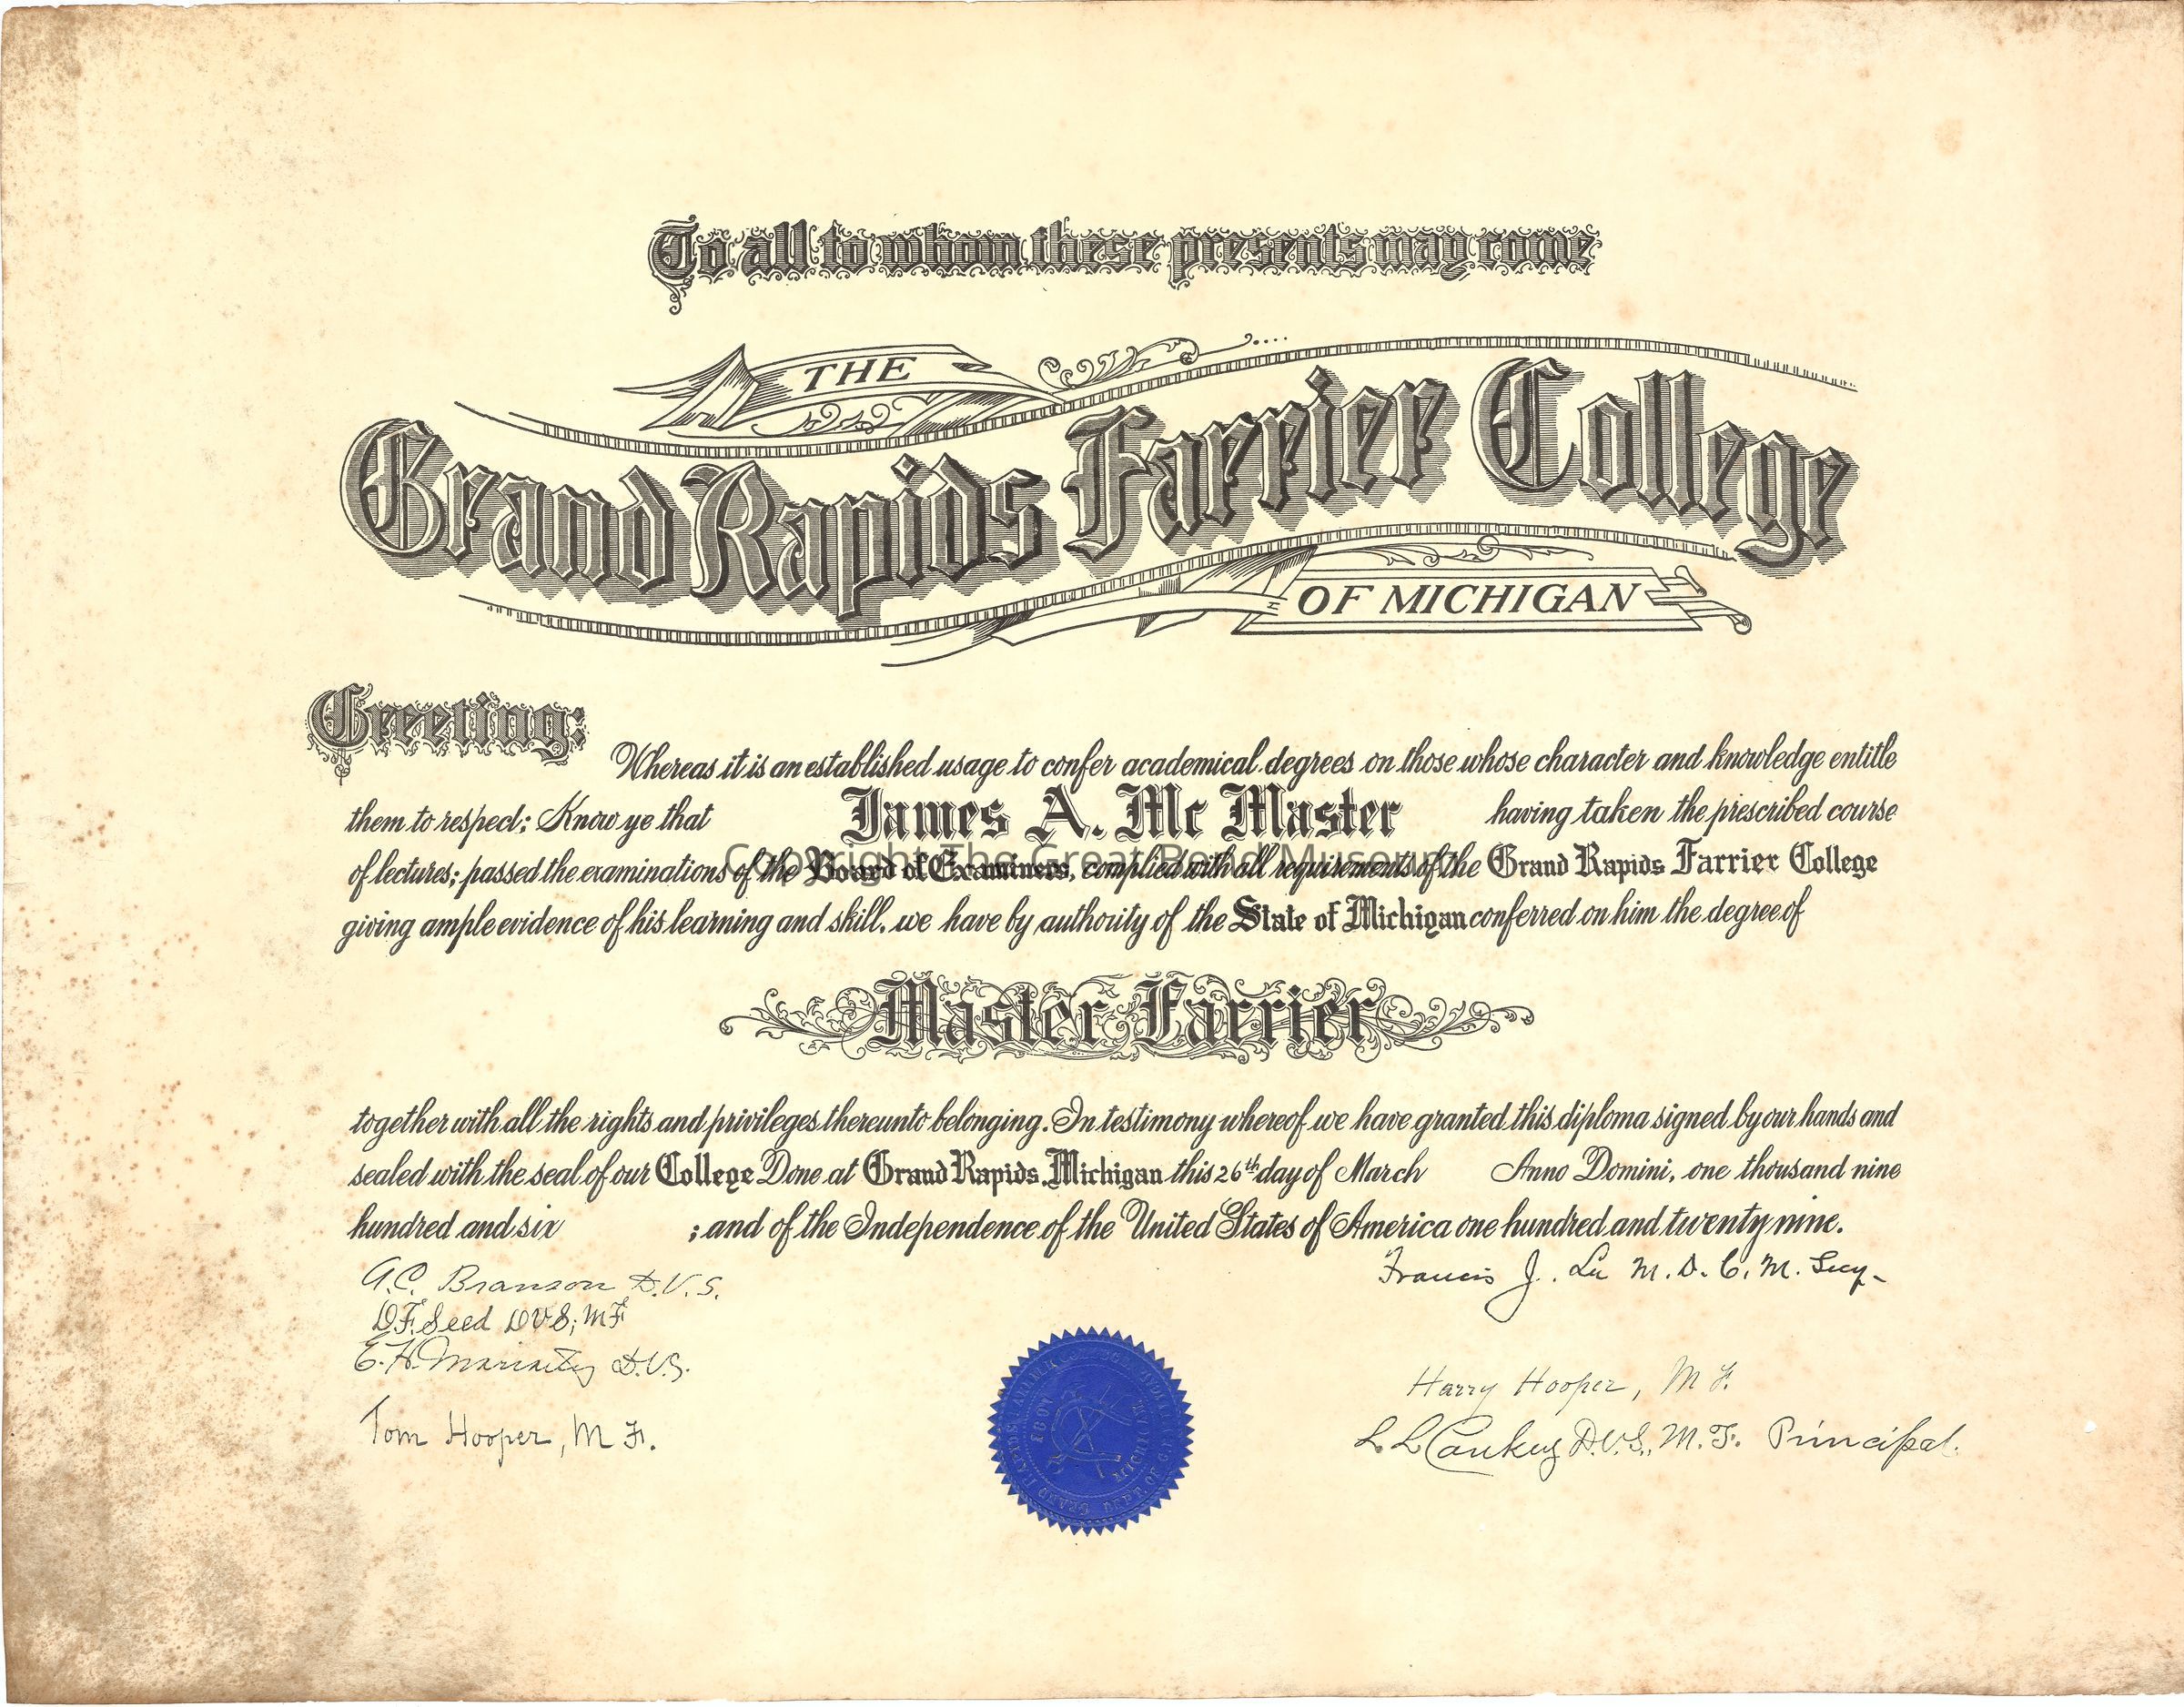 To all to whom these presents may come
THE
Grand Rapids Farrier College
OF MICHIGAN
Greeting:
Whereas it is an established usage to confer academical degrees on those whose character and knowledge entitle
them to respect; Know ye that James A. Mc Master having taken the prescribed course
of lectures; passed the examinations of the Board of Examiners, complied with all requirements of the Grand Rapids Farrier College
Copyright The Great Bend Museum
giving ample evidence of his learning and skill, we have by authority of the State of Michigan conferred on him the degree of
Master Farrier
together with all the rights and privileges thereunto belonging. In testimony whereof we have granted this diploma signed by our hands and
sealed with the seal of our College Done at Grand Rapids, Michigan this 26th day of March Anno Domini, one thousand nine
hundred and six ; and of the Independence of the United States of America one hundred and twenty nine.
A.C. Branson D.V.S.
D.F. Seed DVS, MF
E.H. D.V.S.
Tom Hooper, M F.
Francis J. M.D.C.M.
Harry Hooper, M F.
L L D.V.S., M.F. Principal.